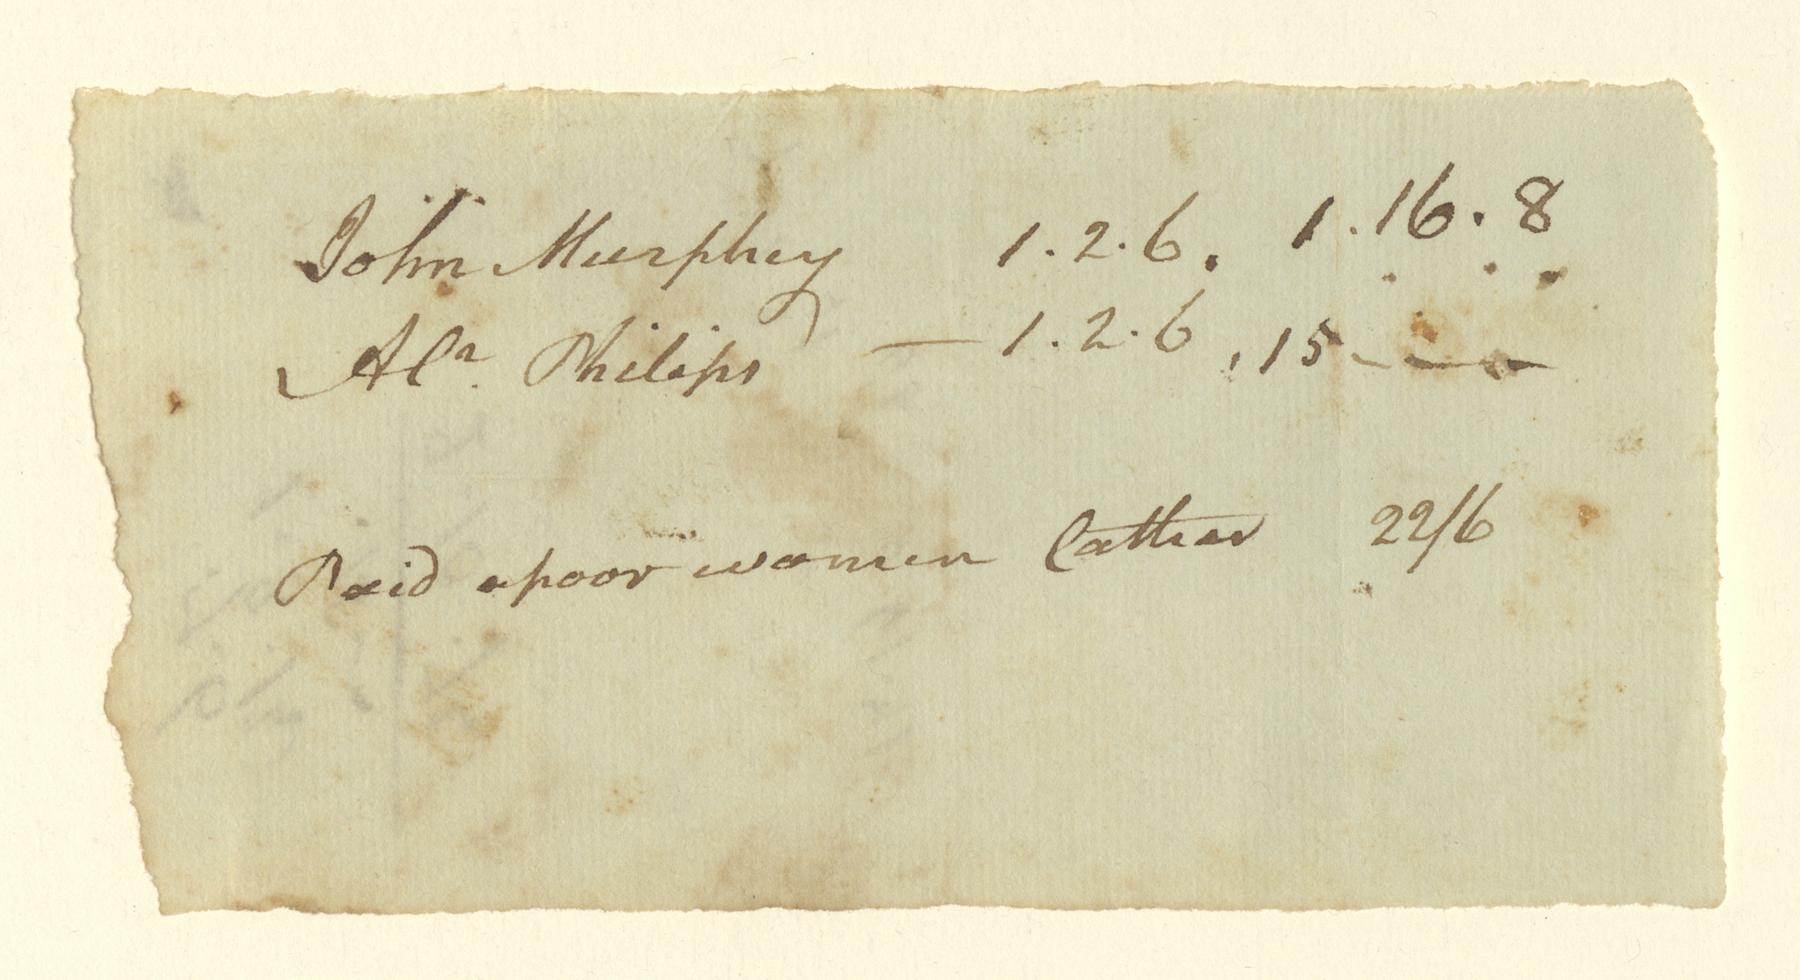 John Murphey 1.2.6. 1.16.8
Alr. Philips — 1.2.6 .15 —
Paid apoor women Cathar 22/6